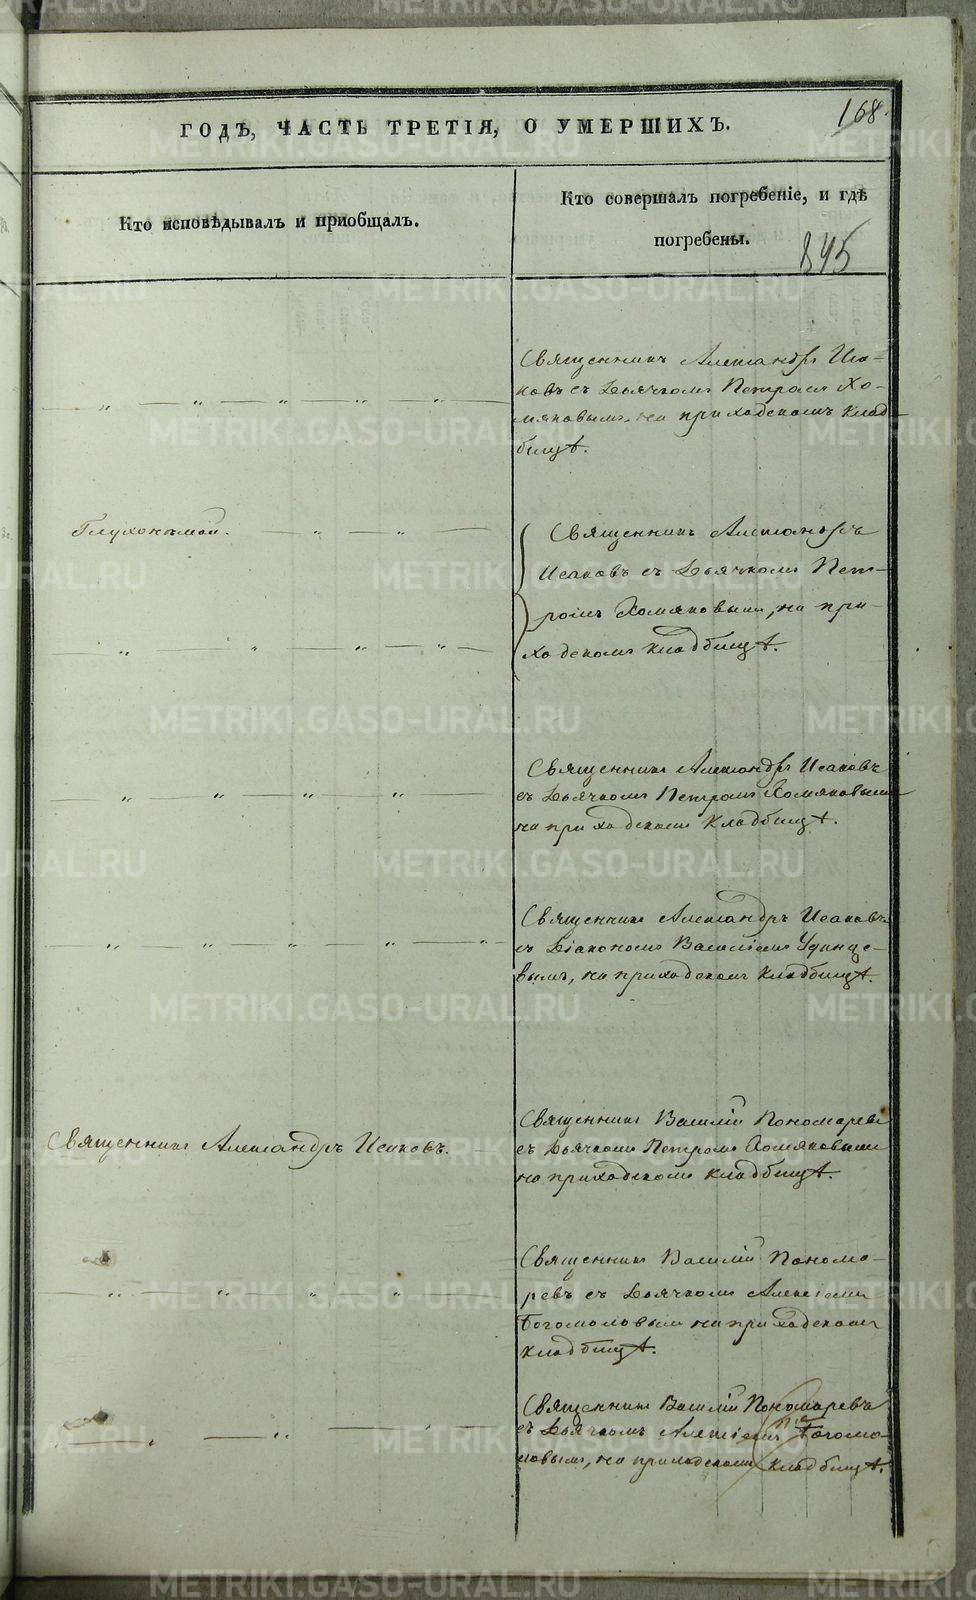 168.
ГОДЪ, ЧАСТЬ ТРЕТІЯ, О УМЕРШИХЪ.
Кто исповѣдывалъ и пріобщалъ.
Кто совершалъ погребеніе, и гдѣ
погребены.
845
Священникъ Александръ Иса-
ковъ съ Дьячкомъ Петромъ Хо-
мяковымъ, на приходскомъ клад-
бищѣ.
Глухонѣмой.
Священникъ Александръ
Исаковъ съ Дьячкомъ Пет-
ромъ Хомяковымъ, на при-
ходскомъ кладбищѣ.
Священникъ Александръ Исаковъ
съ Дьячкомъ Петромъ Хомяковымъ
на приходскомъ кладбищѣ.
Священникъ Александръ Исаковъ
съ Діакономъ Василіемъ Удинце-
вымъ, на приходскомъ кладбищѣ.
Священникъ Александръ Исаковъ.
Священникъ Василій Пономаревъ
съ Дьячкомъ Петромъ Хомяковымъ
на приходскомъ кладбищѣ.
Священникъ Василій Понома-
ревъ съ Дьячкомъ Алексіемъ
Богомоловымъ на приходскомъ
кладбищѣ.
Священникъ Василій Пономаревъ
съ Дьячкомъ Алексіемъ Богомо-
ловымъ, на приходскомъ кладбищѣ.
METRIKI.GASO-URAL.RU